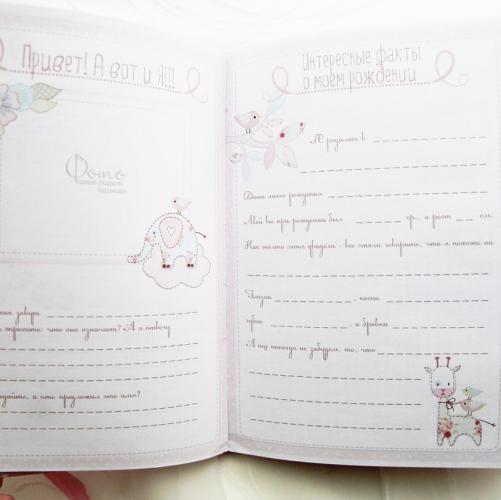 Привет! А вот и я!!!
Фото
самой сладкой
малышки
меня зовут
спросите: что оно означает? А я отвечу
а кто предложил это имя?
Интересные факты
о моём рождении
Я родилась в
Дата моего рождения
Мой вес при рождении был гр., а рост см.
Как только меня увидели - все стали говорить, что я похожа на
Глазки , носик
губки , а бровки
А ещё никогда не забудем, то, что